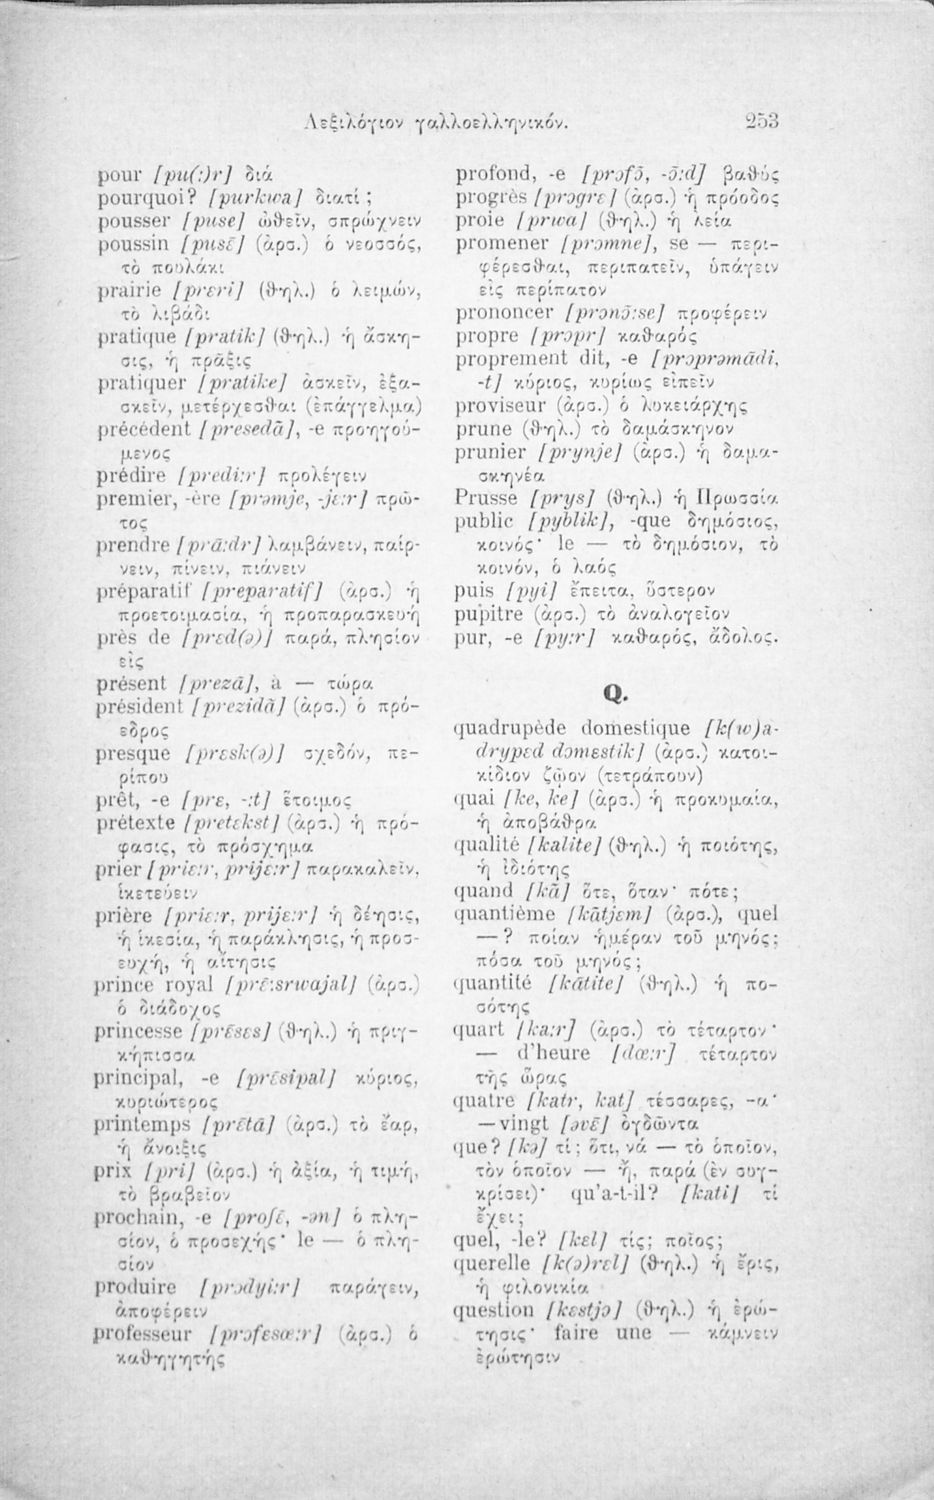 Λεξιλόγιον γαλλοελληνικόν. 253
pour [pu(:)r] διά
pourquoi? [purkwa] διατί;
pousser [puse] ὠθεῖν, σπρώχνειν
poussin [pusɛ̃] (ἀρσ.) ὁ νεοσσός,
τὸ πουλάκι
prairie [prɛri] (θηλ.) ὁ λειμών,
τὸ λιβάδι
pratique [pratik] (θηλ.) ἡ ἄσκη-
σις, ἡ πρᾶξις
pratiquer [pratike] ἀσκεῖν, ἐξα-
σκεῖν, μετέρχεσθαι (ἐπάγγελμα)
précédent [presedɑ̃], -e προηγού-
μενος
prédire [predi:r] προλέγειν
premier, -ère [prəmje, -jɛ:r] πρῶ-
τος
prendre [prɑ̃:dr] λαμβάνειν, παίρ-
νειν, πίνειν, πιάνειν
préparatif [preparatif] (ἀρσ.) ἡ
προετοιμασία, ἡ προπαρασκευή
près de [prɛd(ə)] παρά, πλησίον
εἰς
présent [prezɑ̃], à — τώρα
président [prezidɑ̃] (ἀρσ.) ὁ πρό-
εδρος
presque [prɛsk(ə)] σχεδόν, πε-
ρίπου
prêt, -e [prɛ, -:t] ἕτοιμος
prétexte [pretɛkst] (ἀρσ.) ἡ πρό-
φασις, τὸ πρόσχημα
prier [priɛ:r, prijɛ:r] παρακαλεῖν,
ἱκετεύειν
prière [priɛ:r, prijɛ:r] ἡ δέησις,
ἡ ἱκεσία, ἡ παράκλησις, ἡ προσ-
ευχή, ἡ αἴτησις
prince royal [prɛ̃:srwajal] (ἀρσ.)
ὁ διάδοχος
princesse [prɛ̃sɛs] (θηλ.) ἡ πριγ-
κήπισσα
principal, -e [prɛ̃sipal] κύριος,
κυριώτερος
printemps [prɛ̃tɑ̃] (ἀρσ.) τὸ ἔαρ,
ἡ ἄνοιξις
prix [pri] (ἀρσ.) ἡ ἀξία, ἡ τιμή,
τὸ βραβεῖον
prochain, -e [prɔʃɛ̃, -ən] ὁ πλη-
σίον, ὁ προσεχής· le — ὁ πλη-
σίον
produire [prɔdyi:r] παράγειν,
ἀποφέρειν
professeur [prɔfesœ:r] (ἀρσ.) ὁ
καθηγητής
profond, -e [prɔfɔ̃, -ɔ̃:d] βαθύς
progrès [prɔgrɛ] (ἀρσ.) ἡ πρόοδος
proie [prwa] (θηλ.) ἡ λεία
promener [prɔmne], se — περι-
φέρεσθαι, περιπατεῖν, ὑπάγειν
εἰς περίπατον
prononcer [prɔnɔ̃:se] προφέρειν
propre [prɔpr] καθαρός
proprement dit, -e [prɔprəmɑ̃di,
-t] κύριος, κυρίως εἰπεῖν
proviseur (ἀρσ.) ὁ λυκειάρχης
prune (θηλ.) τὸ δαμάσκηνον
prunier [prynje] (ἀρσ.) ἡ δαμα-
σκηνέα
Prusse [prys] (θηλ.) ἡ Πρωσσία
public [pyblik], -que δημόσιος,
κοινός· le — τὸ δημόσιον, τὸ
κοινόν, ὁ λαός
puis [pyi] ἔπειτα, ὕστερον
pupitre (ἀρσ.) τὸ ἀναλογεῖον
pur, -e [py:r] καθαρός, ἄδολος.
Q.
quadrupède domestique [k(w)a-
drypɛd dɔmɛstik] (ἀρσ.) κατοι-
κίδιον ζῷον (τετράπουν)
quai [ke, kɛ] (ἀρσ.) ἡ προκυμαία,
ἡ ἀποβάθρα
qualité [kalite] (θηλ.) ἡ ποιότης,
ἡ ἰδιότης
quand [kɑ̃] ὅτε, ὅταν· πότε;
quantième [kɑ̃tjɛm] (ἀρσ.), quel
—? ποίαν ἡμέραν τοῦ μηνός;
πόσα τοῦ μηνός;
quantité [kɑ̃tite] (θηλ.) ἡ πο-
σότης
quart [ka:r] (ἀρσ.) τὸ τέταρτον·
— d'heure [dœ:r] τέταρτον
τῆς ὥρας
quatre [katr, kat] τέσσαρες, -α·
—vingt [əvɛ̃] ὀγδῶντα
que? [kə] τί; ὅτι, νά — τὸ ὁποῖον,
τὸν ὁποῖον — ἤ, παρά (ἐν συγ-
κρίσει)· qu'a-t-il? [kati] τί
ἔχει;
quel, -le? [kɛl] τίς; ποῖος;
querelle [k(ə)rɛl] (θηλ.) ἡ ἔρις,
ἡ φιλονικία
question [kɛstjɔ] (θηλ.) ἡ ἐρώ-
τησις· faire une — κάμνειν
ἐρώτησιν